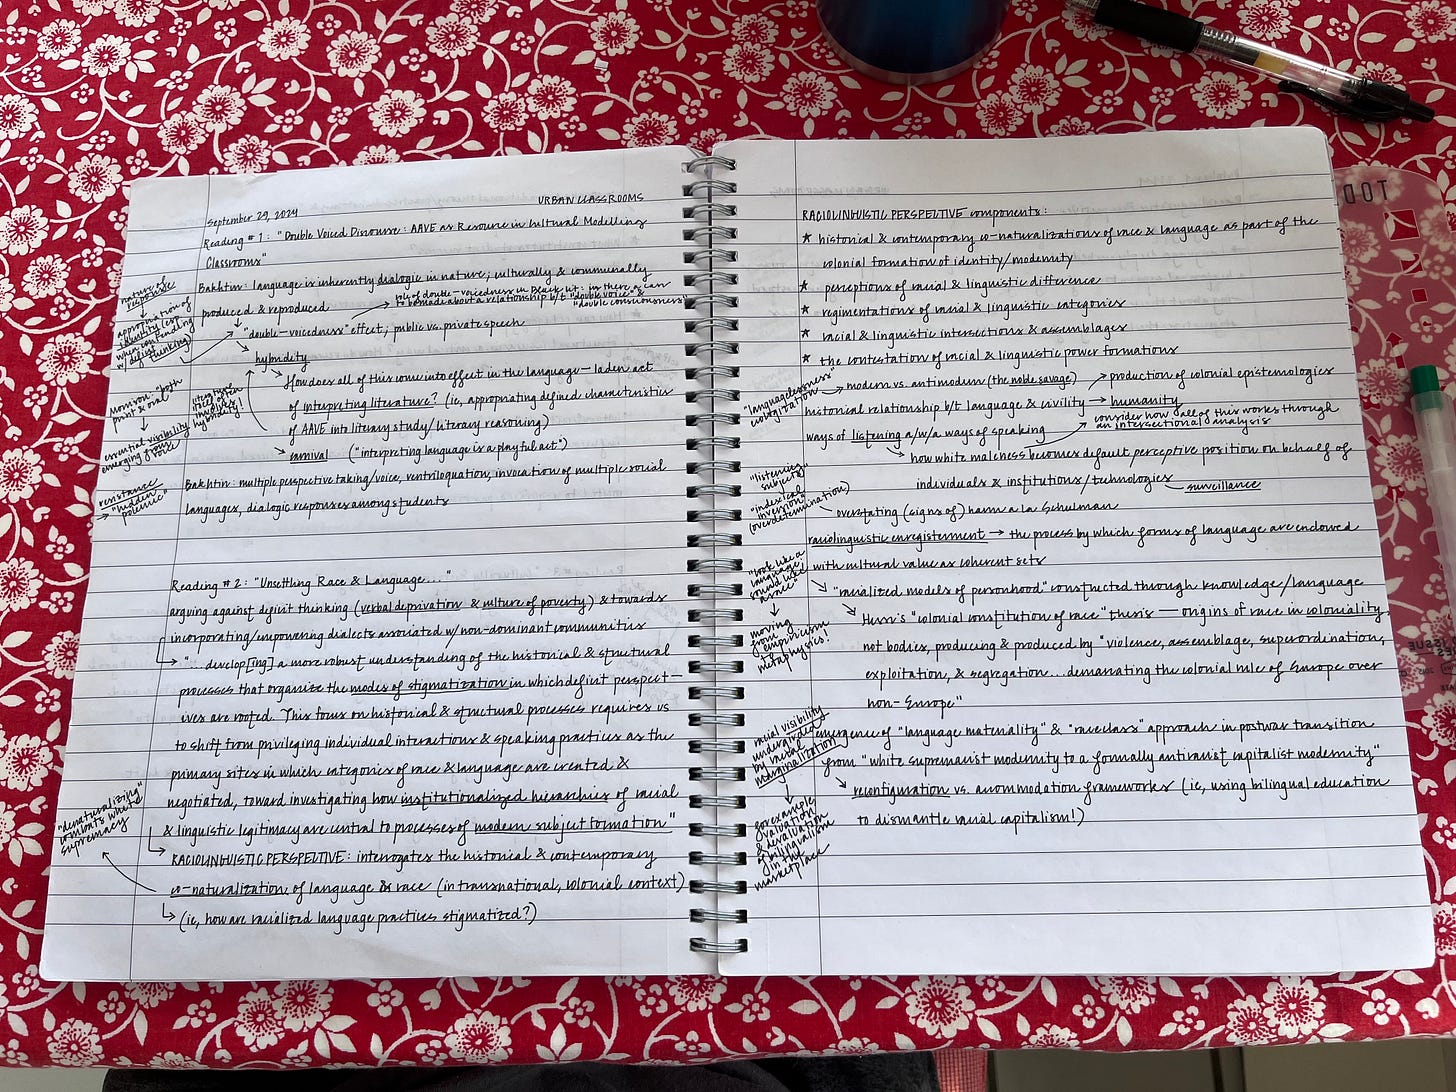 September 29, 2024
URBAN CLASSROOMS
Reading #1: "Double Voiced Discourse: AAVE as Resource in Cultural Modelling
Classrooms"
Bakhtin: language is inherently dialogic in nature; culturally & communally
produced & reproduced
→ role of double-voicedness in Black lit: in there a
to be made about a relationship b/t "double voice" &
"double consciousness"
"double-voicedness" effect; public vs. private speech
↳ hybridity
↳ How does all of this come into effect in the language-laden act
of interpreting literature? (ie, appropriating defined characteristics
of AAVE into literary study/literary reasoning)
↳ carnival ("interpreting language is a playful act")
Bakhtin: multiple perspective taking/voice, ventriloquation, invocation of multiple social
languages, dialogic responses among students
nature of
response
↓
appropriation of
identity (esp.
when contending
w/ deficit
thinking)
Morrison "both
print & oral"
↓
essential visibility
emerging from
voice
literature
itself often
involves
hybridity!
resistance
→ "hidden
polemic"
Reading #2: "Unsettling Race & Language..."
arguing against deficit thinking (verbal deprivation & culture of poverty) & towards
incorporating/empowering dialects associated w/ non-dominant communities
→ "...develop[ing] a more robust understanding of the historical & structural
processes that organize the modes of stigmatization in which deficit perspect-
ives are rooted. This focus on historical & structural processes requires us
to shift from privileging individual interactions & speaking practices as the
primary sites in which categories of race & language are created &
negotiated, toward investigating how institutionalized hierarchies of racial
& linguistic legitimacy are central to processes of modern subject formation"
↳ RACIOLINGUISTIC PERSPECTIVE: interrogates the historical & contemporary
co-naturalization of language & race (in transnational, colonial context)
↳ (ie, how are racialized language practices stigmatized?)
"denaturalizing"
combats white
supremacy
RACIOLINGUISTIC PERSPECTIVE components:
★ historical & contemporary co-naturalizations of race & language as part of the
colonial formation of identity/modernity
★ perceptions of racial & linguistic difference
★ regimentations of racial & linguistic categories
★ racial & linguistic intersections & assemblages
★ the contestation of racial & linguistic power formations
"languagelessness"
→ modern vs. antimodern (the noble savage)
→ production of colonial epistemologies
historical relationship b/t language & civility → humanity
consider how all of this works through
an intersectional analysis
ways of listening a/w/a ways of speaking
↳ how white maleness becomes default perceptive position on behalf of
individuals & institutions/technologies — surveillance
"listening
subject"
&
"indexical
inversion"
(overdetermination)
overstating (signs of) harm a la Schulman
raciolinguistic enregisterment → the process by which forms of language are endowed
with cultural value as coherent sets
"look like a
language,
sound like
a race"
↳ "racialized models of personhood" constructed through knowledge/language
↳ Hesse's "colonial constitution of race" thesis — origins of race in coloniality,
not bodies, producing & produced by "violence, assemblage, superordination,
exploitation, & segregation...demarcating the colonial rule of Europe over
non-Europe"
moving
from
empiricism
to
metaphysics!
emergence of "language materiality" & "raceclass" approach in postwar transition
from "white supremacist modernity to a formally antiracist capitalist modernity"
↳ reconfiguration vs. accommodation frameworks (ie, using bilingual education
to dismantle racial capitalism!)
racial visibility
undergirded
by racial
marginalization
↓
for example,
valuation
& devaluation
of bilingualism
in the
marketplace
TOD